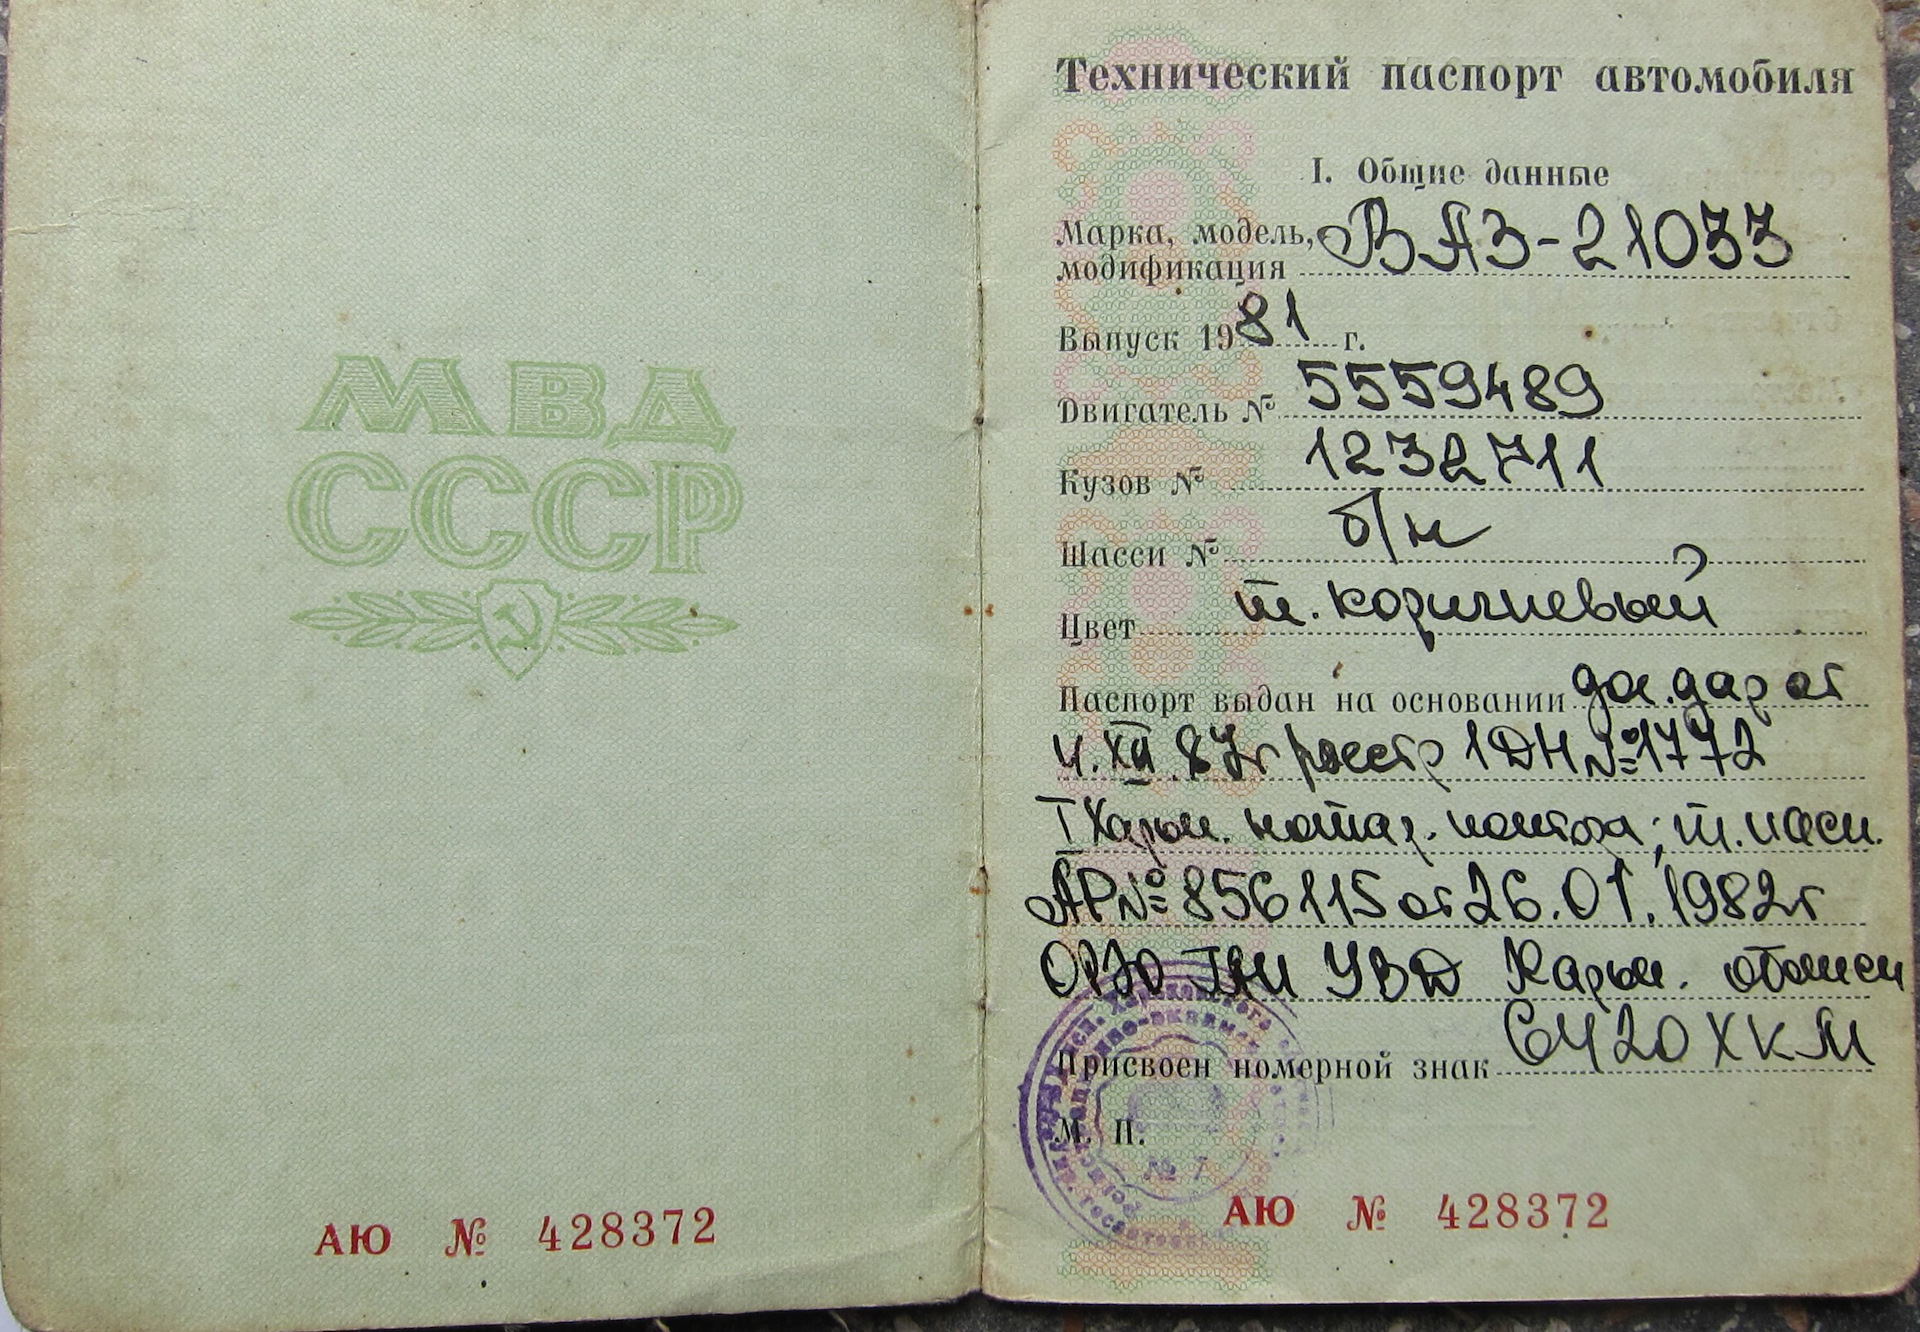 МВД
СССР
АЮ № 428372
Технический паспорт автомобиля
I. Общие данные
Марка, модель, модификация ВАЗ-21033
Выпуск 1981 г.
Двигатель № 5559489
Кузов № 1232711
Шасси № б/н
Цвет т. коричневый
Паспорт выдан на основании дог. дар от
4. XII. 87г реестр 1ДН №1772
I Харьк. нотар. контора; т. пасп.
АР№ 856115 от 26.01.1982г
ОРЭО ГАИ УВД Харьк. области
Присвоен номерной знак С4120ХКМ
М. П.
№ 1
АЮ № 428372